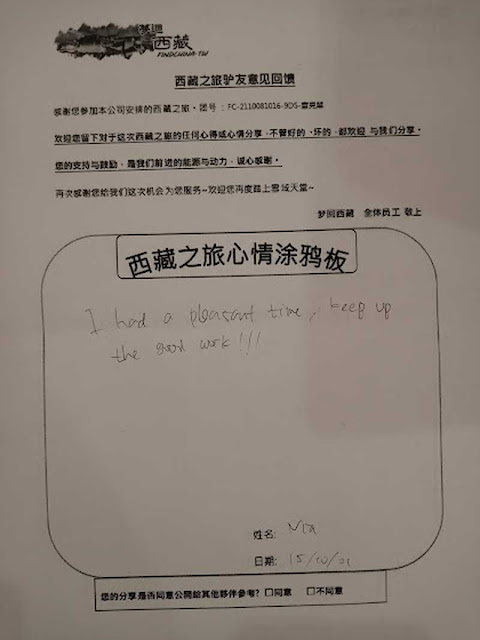 梦迴
西藏
FINDCHINA·TW
西藏之旅驴友意见回馈
感谢您参加本公司安排的西藏之旅，团号：FC-2110081016-9DS-雷克瑟
欢迎您留下对于这次西藏之旅的任何心得或心情分享，不管好的、坏的，都欢迎 与我们分享。
您的支持与鼓励，是我们前进的能源与动力，诚心感谢。
再次感谢您给我们这次机会为您服务~欢迎您再度踏上雪域天堂~
梦回西藏 全体员工 敬上
西藏之旅心情涂鸦板
I had a pleasant time, keep up
the good work!!!
姓名:
日期: 15/10/21
您的分享是否同意公開給其他夥伴參考? □同意 □不同意